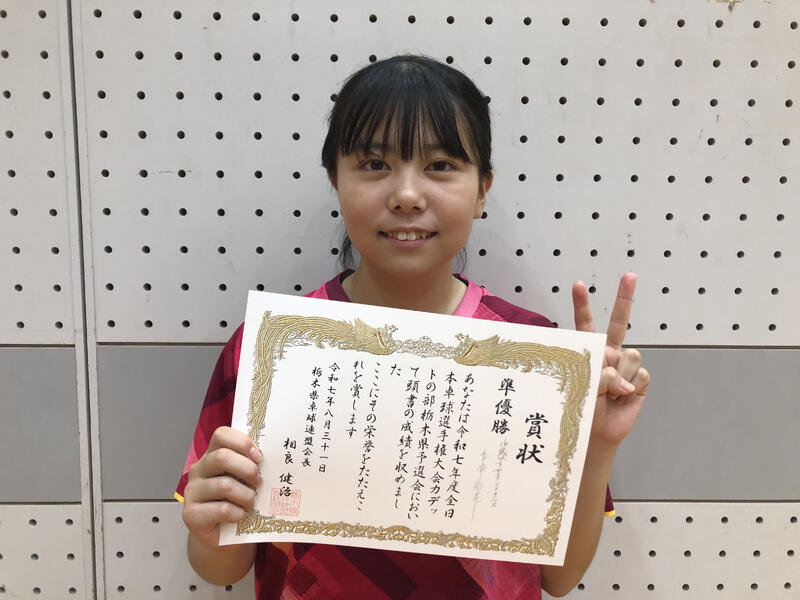 賞状
準優勝
あなたは令和七年度全日
本卓球選手権大会カデッ
トの部栃木県予選会におい
て頭書の成績を収めまし
た
ここにその栄誉をたたえこ
れを賞します
令和七年八月三十一日
栃木県卓球連盟会長
相良 健治